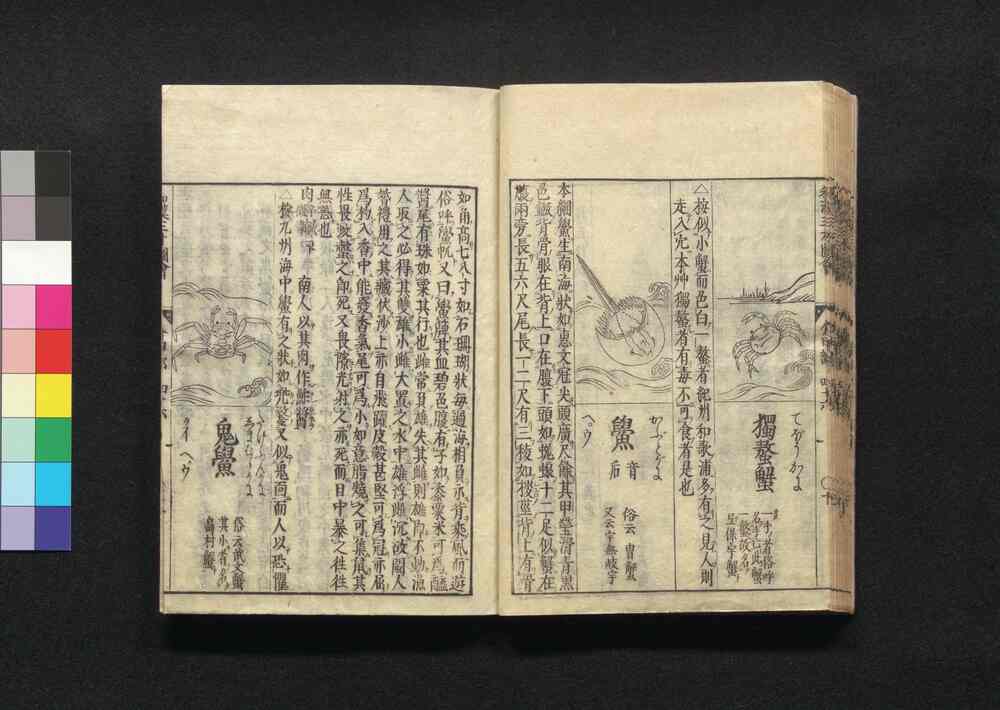 獨螯蟹
△按似小蟹而色白一螯者紀州和歌浦多有之見人則
走入穴本艸獨螯者有毒不可食者是也
鱟
音
后
かぶとがに
俗云
ヘ゜ウ
本綱鱟生南海狀如惠文冠尖頭廣尺餘其甲瑩滑青黑
色鏊背骨眼在背上口在腹下頭如蜣螂十二足似蟹在
腹兩旁長五六尺尾長一二尺有三稜如椶莖背上有骨
如角高七八寸如石珊瑚狀每過海相負示背乘風而遊
俗呼鱟帆又曰鱟簰其血碧色腹有子如黍粟米可爲醢
醬尾有珠如粟其行也雌常負雄失其雌則雄卽不動漁
人取之必得其雙雄小雌大置之水中雄浮雌沉故閩人
婚禮用之其藏伏沙上亦自飛躍皮殼甚堅可爲冠亦屈
爲杓入香中能發香氣尾可爲小如意脂燒之可集鼠其
性畏蚊螫之卽死又畏隙光射之亦死而日中暴之往往
無恙也
肉
南人以其肉作鮓醬
△按九州海中鱟有之狀如兜鍪又似鬼面而人以恐懼
鬼鱟
クイ ヘ゜ウ
俗云武文蟹
其小者名
島村蟹